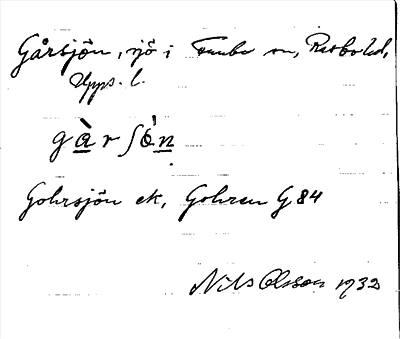 Gårsjön, sjö i Funbo sn, Rasbo hd,
Upps. l.
gàrʃὸn
Gohrsjön ek, Gohren G 84
Nils Olsson 1932